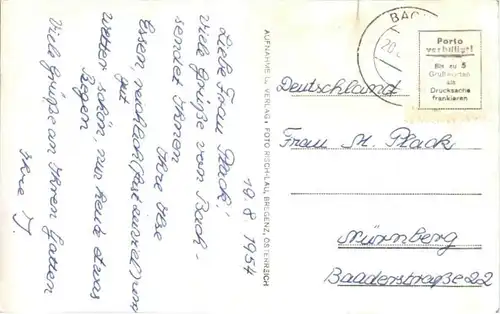 19.8.1954
Liebe Frau Plack!
Viele Grüße von Bach-
sendet Ihnen
Ihre Ilse
Essen, reichlich (fast zuviel) und
gut
Wetter schön, nur heute etwas
Regen
Viele Grüße an Ihren Gatten
Ihre J.
AUFNAHME u. VERLAG, FOTO RISCH-LAU, BREGENZ, ÖSTERREICH
BAC
20.
Porto
verbilligt!
Bis zu 5
Grußworten
als
Drucksache
frankieren
Deutschland
Frau M. Plack
Nürnberg
Baaderstraße 22